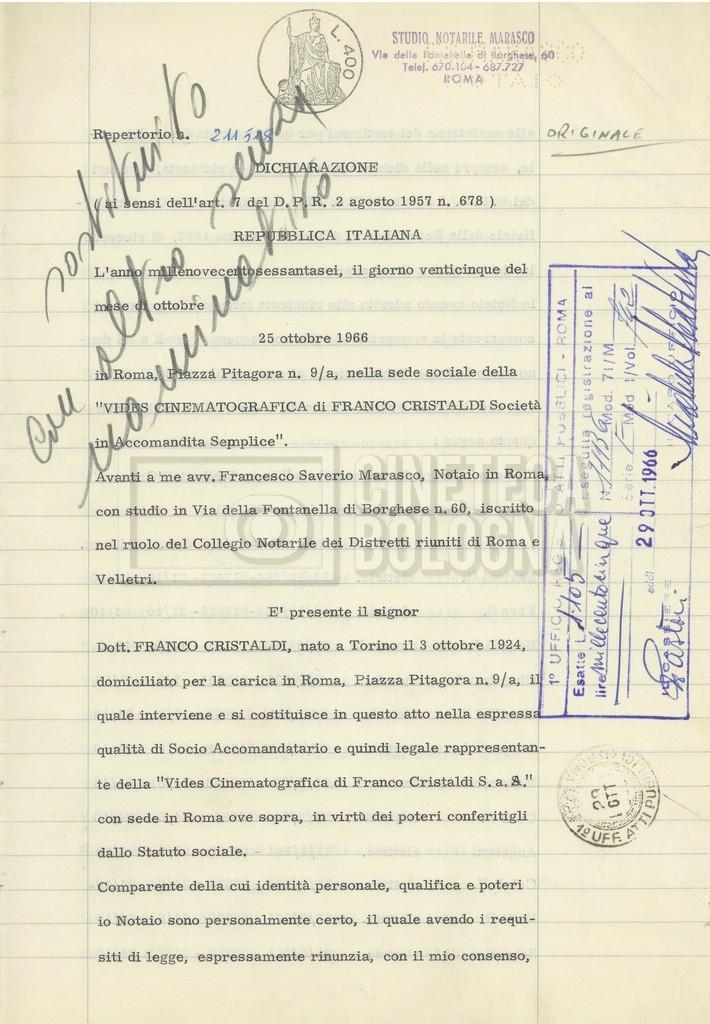 L. 400
STUDIO NOTARILE MARASCO
Via della Fontanella di Borghese, 60
Telef. 670.104 - 687.727
ROMA
Repertorio n. 211518
ORIGINALE
sostituito
con altro senza
nominativo
DICHIARAZIONE
( ai sensi dell'art. 7 del D. P. R. 2 agosto 1957 n. 678 )
REPUBBLICA ITALIANA
L'anno millenovecentosessantasei, il giorno venticinque del
mese di ottobre
25 ottobre 1966
in Roma, Piazza Pitagora n. 9/a, nella sede sociale della
"VIDES CINEMATOGRAFICA di FRANCO CRISTALDI Società
in Accomandita Semplice".
Avanti a me avv. Francesco Saverio Marasco, Notaio in Roma,
con studio in Via della Fontanella di Borghese n. 60, iscritto
nel ruolo del Collegio Notarile dei Distretti riuniti di Roma e
Velletri.
E' presente il signor
Dott. FRANCO CRISTALDI, nato a Torino il 3 ottobre 1924,
domiciliato per la carica in Roma, Piazza Pitagora n. 9/a, il
quale interviene e si costituisce in questo atto nella espressa
qualità di Socio Accomandatario e quindi legale rappresentan-
te della "Vides Cinematografica di Franco Cristaldi S. a. S."
con sede in Roma ove sopra, in virtù dei poteri conferitigli
dallo Statuto sociale.
Comparente della cui identità personale, qualifica e poteri
io Notaio sono personalmente certo, il quale avendo i requi-
siti di legge, espressamente rinunzia, con il mio consenso,
1° UFFICIO ATTI PUBBLICI - ROMA
Eseguita registrazione al
N. Mod. 71/M
Serie Mod. 1/Vol.
Esatte L. 1105
lire millecentocinque
addì 29 OTT. 1966
1º UFF. ATTI PUBBLICI
29 OTT
CINETECA
BOLOGNA